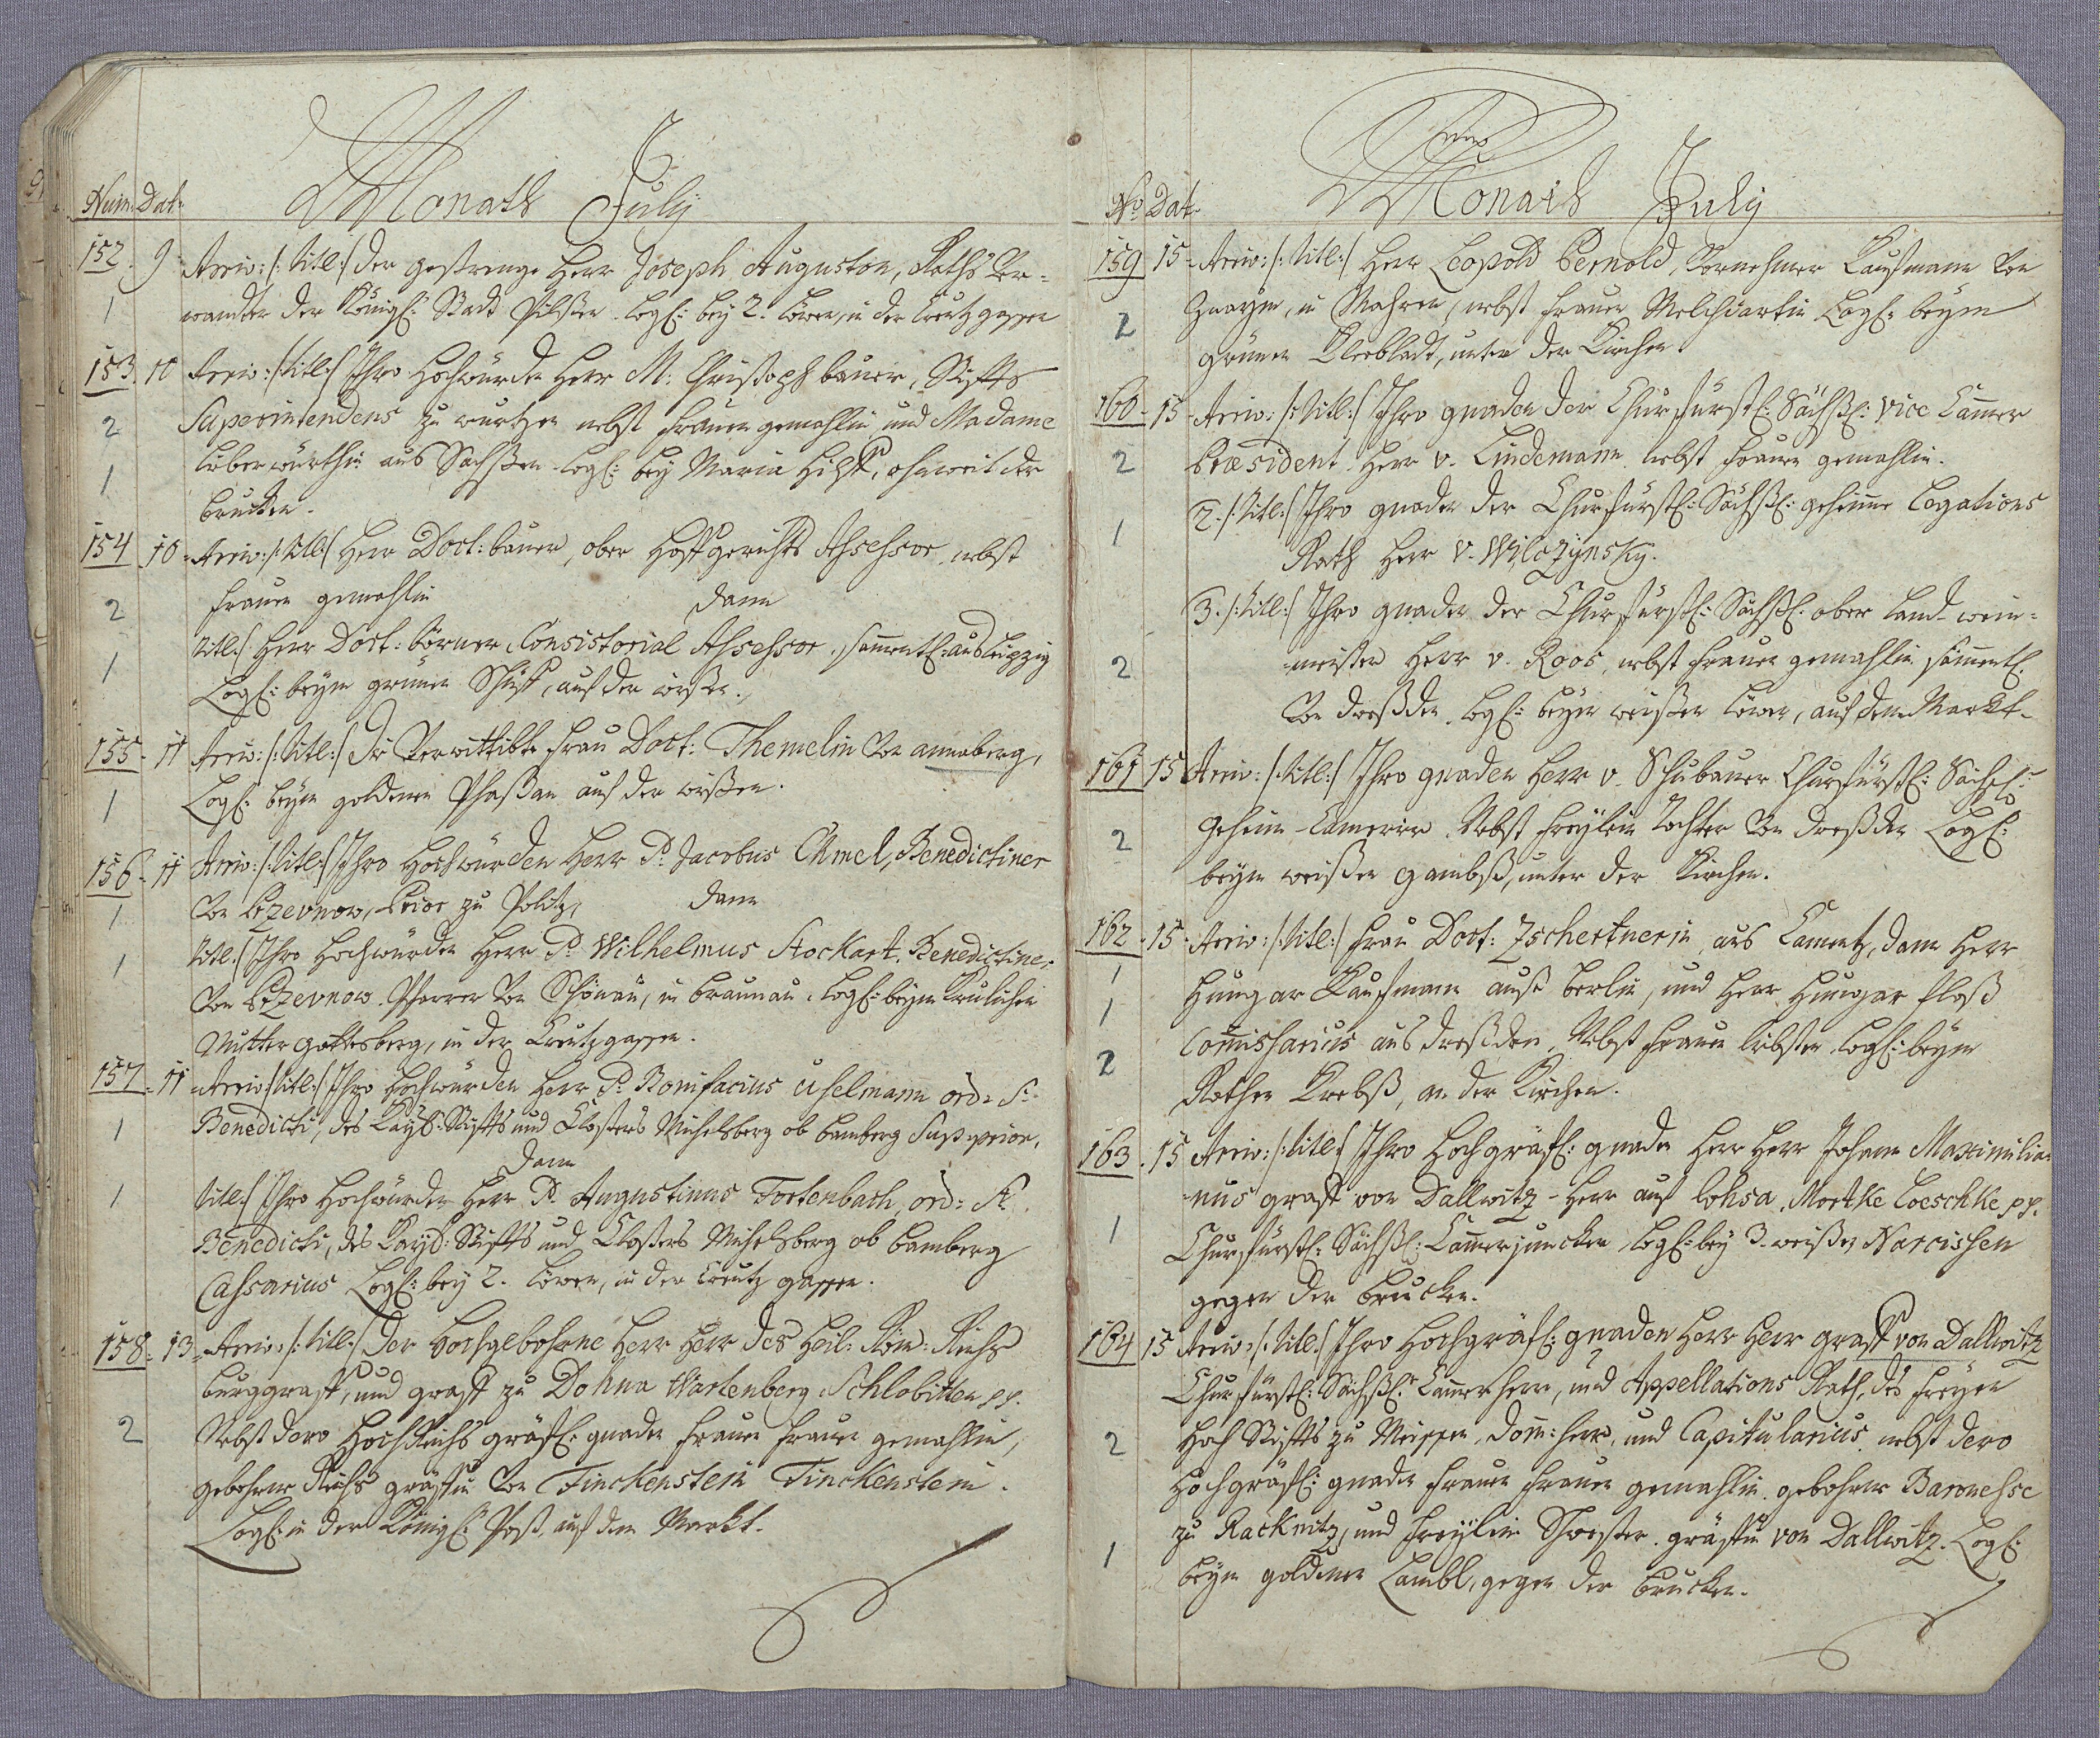 Monath July
Num: Dat:
152. 9 Arriv: /: titl: / der gestrenge Herr Joseph Auguston, Raths Ver-
1 wandter der Königl: Stadt Pilßen. Logl: bey 2. Löwen, in der Creutzgassen
153. 10 Arriv: /: titl: / Ihro Hochwürden Herr M: Christoph bauer, Stiffts
2 Superintendens zu wurtzen nebst Frauen gemahlin und Madame
1 aus Sachßen Logl: bey Maria Hilff, ohnweit der
brucken.
154 10 Arriv: /: titl: / Herr Doct: bauer, ober Hoffgerichts Assessor, nebst
2 Frauen gemahlin dann
1 titl: / Herr Doct: Körner, Consistorial Assessor, sammentl: aus Leipzig
Logl: beym grünen Schiff, auf der wießen.
155. 11 Arriv: /: titl: / Die Verwittibte Frau Doct: Themelin Von annaberg,
1 Logl: beym goldenen Phaßan auf der wießen.
156. 11 Arriv: /: titl: / Ihro Hochwürden Herr P. Jacobus Chmel, Benedictiner
1 Von Brzevnow, Prior zu Politz, dann
1 titl: / Ihro Hochwürden Herr P. Wilhelmus Stockart. Benedictiner
Von Brzevnow. Pfarrer Von Schönau, in braunau. Logl: beym
Mutter gottesberg, in der Creutzgassen.
157. 11 Arriv: /: titl: / Ihro Hochwürden Herr P. Bonifacius Uselmann ord: S:
1 Benedicti, des Kayß: Stiffts und Closters Michelsberg ob bamberg Supprior,
dann
1 titl: / Ihro Hochwürden Herr P. Augustinus Tortenbach, ord: St.
Benedicti, des Kayß: Stiffts und Closters Michelsberg ob bamberg
Cassarius Logl: bey 2. Löwen, in der Creutzgassen.
158. 13 Arriv: /: titl: / Der Hochgebohrne Herr Herr des Heil: Röm: Reichs
burggraff, und graff zu Dohna Wartenberg. Schlobitten pp.
2 Nebst dero HochReichs gräfl: gnaden Frauen Frauen gemahlin,
gebohrne Reichs gräffin Von Finckenstein Finckenstein.
Logl: in der Königl: Post, auf dem Markt.
Monath July
No Dat:
159 15 Arriv: /: titl: / Herr Leopold Bernold, Vornehmer Kaufmann Von
2 Znaym, in Mähren, nebst Frauen Logl: beym
grünen Kleebladt, unter der Kirchen.
160 15 Arriv: /: titl: / Ihro gnaden der Churfürstl: Sächßl: Vice Cammer
2 Præsident Herr v. Lindemann nebst Frauen gemahlin.
2. /: titl: / Ihro gnaden der Churfürstl: Sächßl: geheime Legations
1 Rath Herr v. Wilczynsky.
3. /: titl: / Ihro gnaden der Churfürstl: Sächßl: ober Land-wein-
2 meister Herr v. Roos, nebst Frauen gemahlin, sämentl:
Von dreßden. Logl: beym weißen Löwen, auf dem Markt.
161 15 Arriv: /: titl: / Ihro gnaden Herr v. Schubauer Churfürstl: Sächßl:
2 Geheim-Camerier. Nebst Freylein Tochter Von dreßden Logl:
beym weißen gambß, unter der Kirchen.
162 15 Arriv: /: titl: / Frau Doct: Zschertnerin aus Camentz, dann Herr
1 Hungar Kaufmann auß berlin, und Herr Hungar floß
1 Commissarius aus dreßden, Nebst Frauen liebsten Logl: beym
2 Rothen Krebß, an der Kirchen.
163. 15 Arriv: /: titl: / Ihro Hochgräfl: gnaden Herr Herr Johann Maximilia-
nus graff von Dallwitz-Herr auf Lohsa. Mortke Loeschke pp.
1 Churfürstl: Sächßl: Cammerjuncker Logl: bey 3. weißen Narcissen
gegen der brucken.
164 15 Arriv: /: titl: / Ihro Hochgräfl: gnaden Herr Herr graff von Dallwitz
Churfürstl: Sächßl: Cammerherr, und Appellations Rath, des Freyen
2 Hoch Stiffts zu Meissen, Dom: Herr, und Capitularius, nebst dero
Hochgräfl: gnaden Frauen Frauen gemahlin gebohrne Baronesse
zu Racknitz, und Freylin Schwester. gräffin von Dallwitz. Logl:
1 beym goldenen Lambl, gegen der brucken.